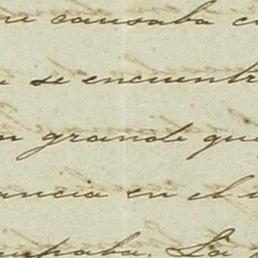 causaba
se encuentr
grande que
ancia en el
La